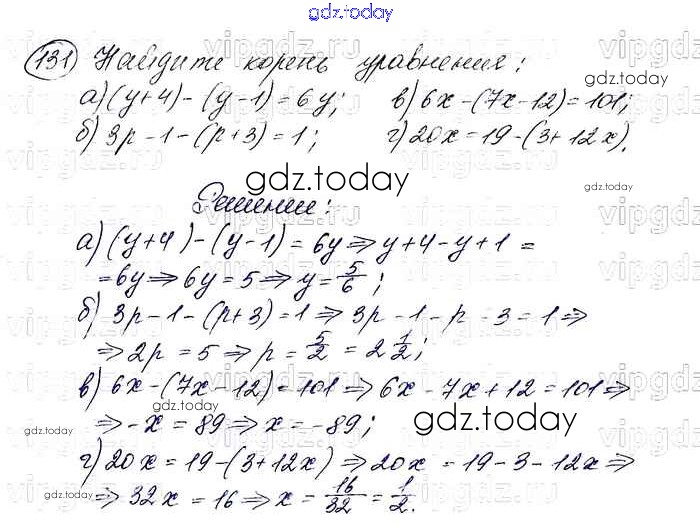 gdz.today
131 Найдите корень уравнения:
gdz.today
а) (y+4)-(y-1)=6y; в) 6x-(7x-12)=101;
б) 3p-1-(p+3)=1; г) 20x=19-(3+12x).
gdz.today
gdz.today
Решение:
а) (y+4)-(y-1)=6y⇒y+4-y+1=
=6y⇒6y=5⇒y=5/6;
б) 3p-1-(p+3)=1⇒3p-1-p-3=1⇒
⇒2p=5⇒p=5/2=2 1/2;
в) 6x-(7x-12)=101⇒6x-7x+12=101⇒
⇒-x=89⇒x=-89;
gdz.today
gdz.today
г) 20x=19-(3+12x)⇒20x=19-3-12x⇒
⇒32x=16⇒x=16/32=1/2.